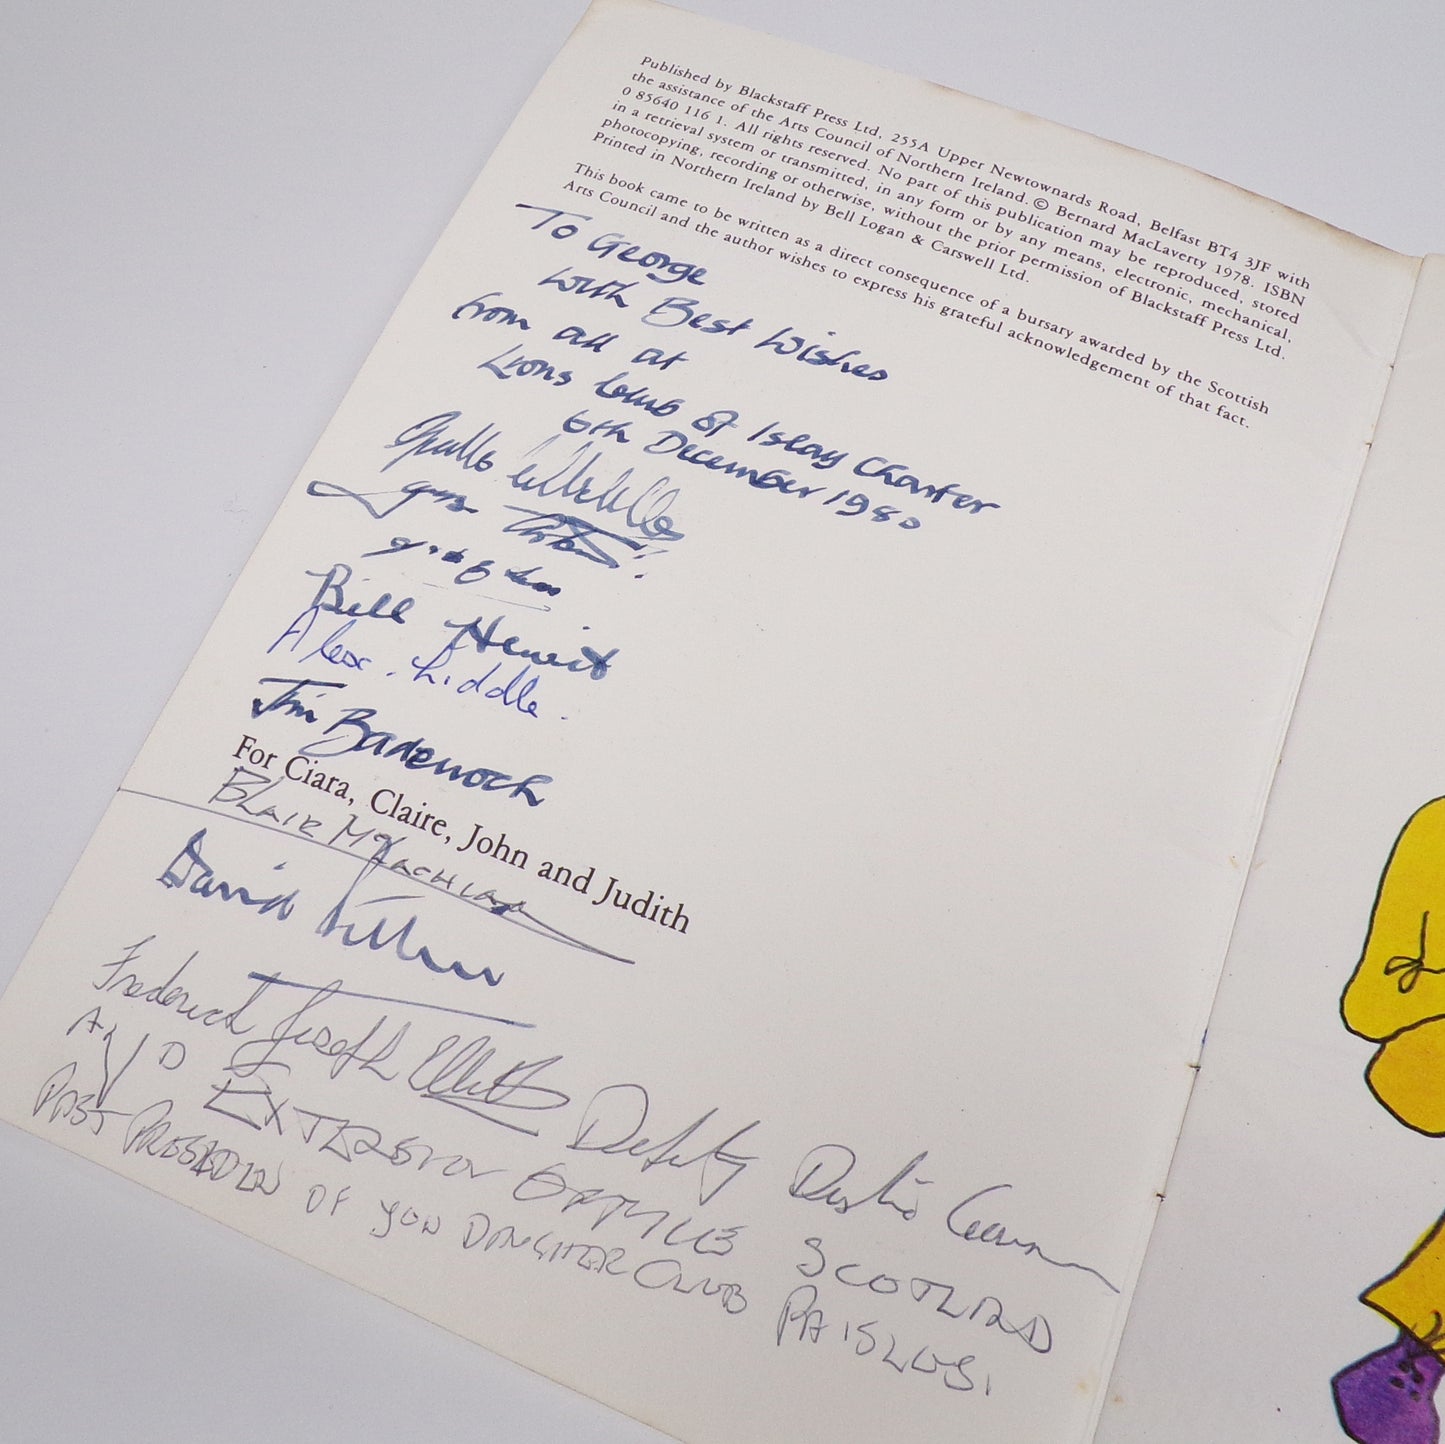 Published by Blackstaff Press Ltd, 255A Upper Newtownards Road, Belfast BT4 3JF with
the assistance of the Arts Council of Northern Ireland. © Bernard MacLaverty 1978. ISBN
0 85640 116 1. All rights reserved. No part of this publication may be reproduced, stored
in a retrieval system or transmitted, in any form or by any means, electronic, mechanical,
photocopying, recording or otherwise, without the prior permission of Blackstaff Press Ltd.
Printed in Northern Ireland by Bell Logan & Carswell Ltd.
This book came to be written as a direct consequence of a bursary awarded by the Scottish
Arts Council and the author wishes to express his grateful acknowledgement of that fact.
To George
with Best Wishes
from all at
Lions Club of Islay Charter
6th December 1980
Bill Hewit
Alex. Liddle.
Jim Badenoch
For Ciara, Claire, John and Judith
Blair McLachlan
David
Frederick Joseph Elliott Deputy
SCOTLAND
PAST PRESIDEN OF YOU DAUGHTER CLUB